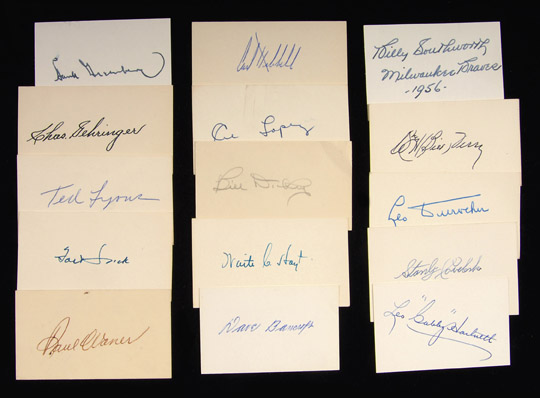 Hank Greenberg
Chas. Gehringer
Ted Lyons
Ford Frick
Paul Waner
Carl Hubbell
Al Lopez
Bill Dickey
Waite C Hoyt
Dave Bancroft
Billy Southworth
Milwaukee Braves
-1956-
Wm H "Bill" Terry
Leo Durocher
Stanley Coveleski
Leo "Gabby" Hartnett